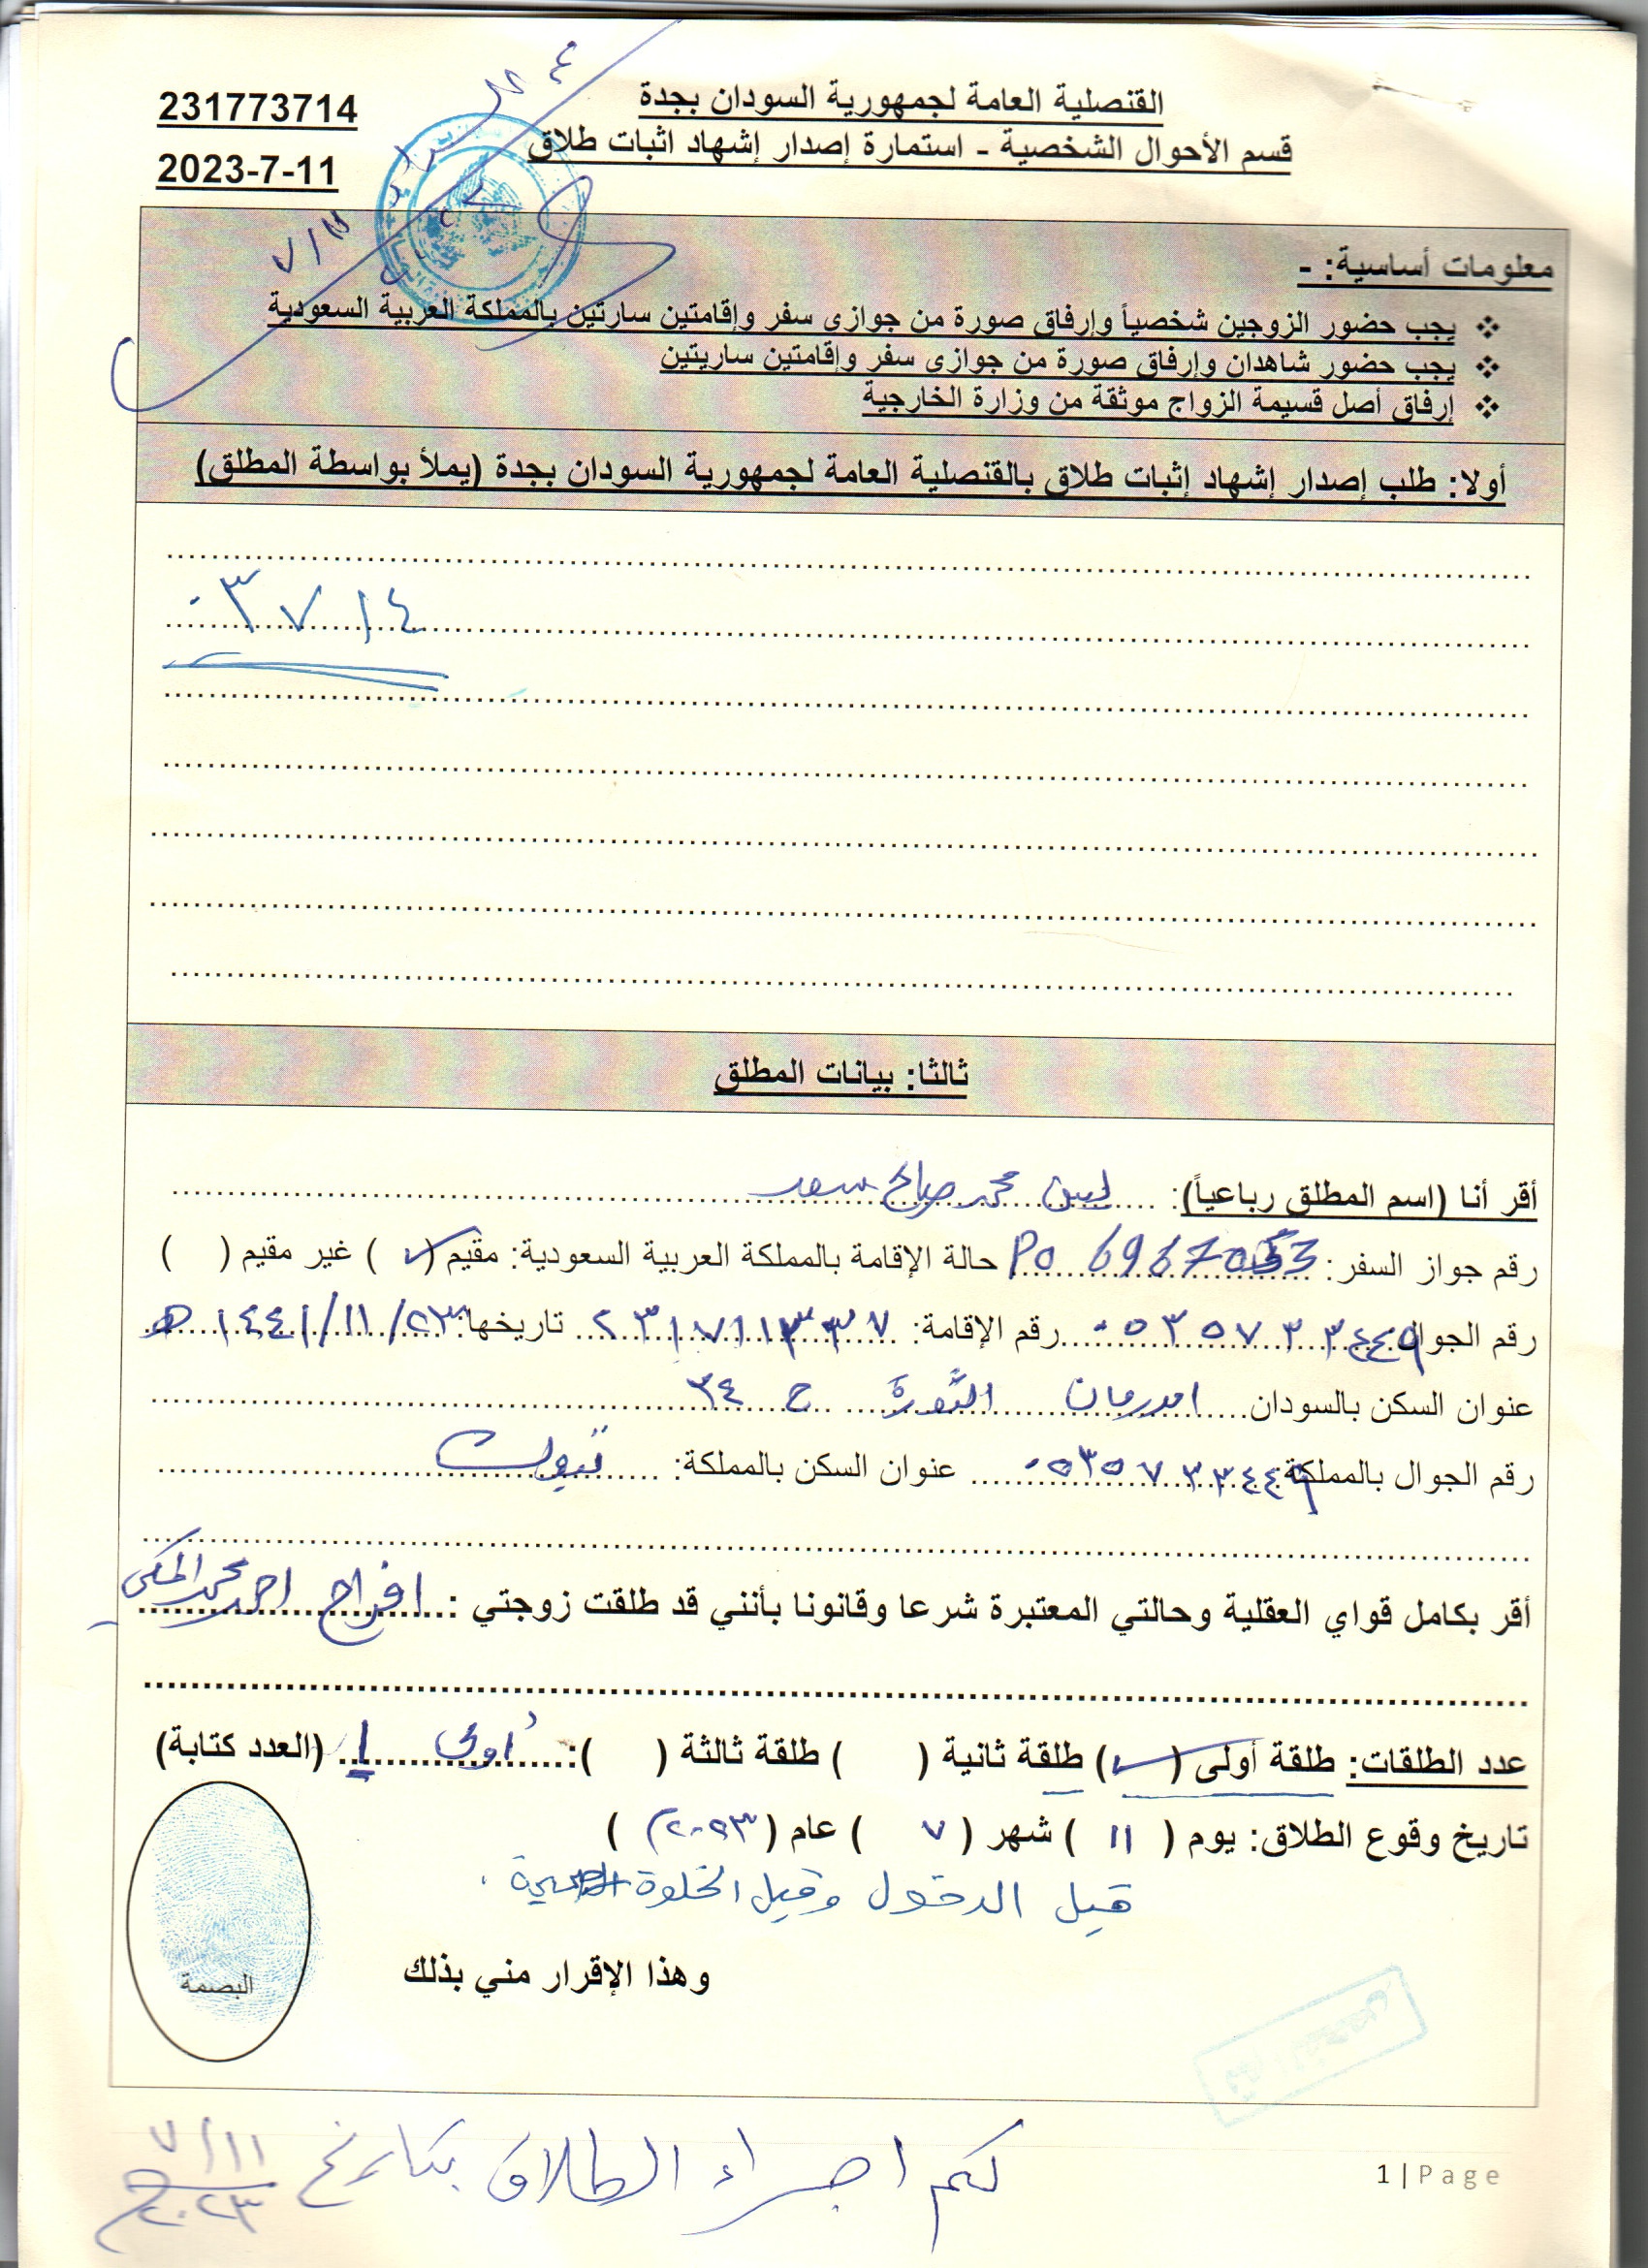 231773714
2023-7-11
القنصلية العامة لجمهورية السودان بجدة
قسم الأحوال الشخصية - استمارة إصدار إشهاد اثبات طلاق
٧/١١
معلومات أساسية: -
❖ يجب حضور الزوجين شخصياً وإرفاق صورة من جوازى سفر وإقامتين سارتين بالمملكة العربية السعودية
❖ يجب حضور شاهدان وإرفاق صورة من جوازى سفر وإقامتين ساريتين
❖ إرفاق أصل قسيمة الزواج موثقة من وزارة الخارجية
أولا: طلب إصدار إشهاد إثبات طلاق بالقنصلية العامة لجمهورية السودان بجدة (يملأ بواسطة المطلق)
٠٣٧١٤
ثالثا: بيانات المطلق
أقر أنا (اسم المطلق رباعياً): محمد صالح سعد
رقم جواز السفر: حالة الإقامة بالمملكة العربية السعودية: مقيم (✓) غير مقيم ( )
رقم الجوال ٠٥٣٥٧٣٣٤٤٩ رقم الإقامة: ٢٣١٧١١٣٣٣٧ تاريخها: ١٤٤١/١١/٢٣ هـ
عنوان السكن بالسودان امدرمان الثورة ح ٣٤
رقم الجوال بالمملكة: ٠٥٣٥٧٣٣٤٤٩ عنوان السكن بالمملكة: تبوك
أقر بكامل قواي العقلية وحالتي المعتبرة شرعا وقانونا بأنني قد طلقت زوجتي: افراح احمد محمد المكي
عدد الطلقات: طلقة أولى (✓) طلقة ثانية ( ) طلقة ثالثة ( ): اولى ١ (العدد كتابة)
تاريخ وقوع الطلاق: يوم ( ١١ ) شهر ( ٧ ) عام ( ٢٠٢٣ )
قبل الدخول وقبل الخلوة
وهذا الإقرار مني بذلك
البصمة
تم اجراء الطلاق بتاريخ ٧/١١
٢٠٢٣
1 | Page